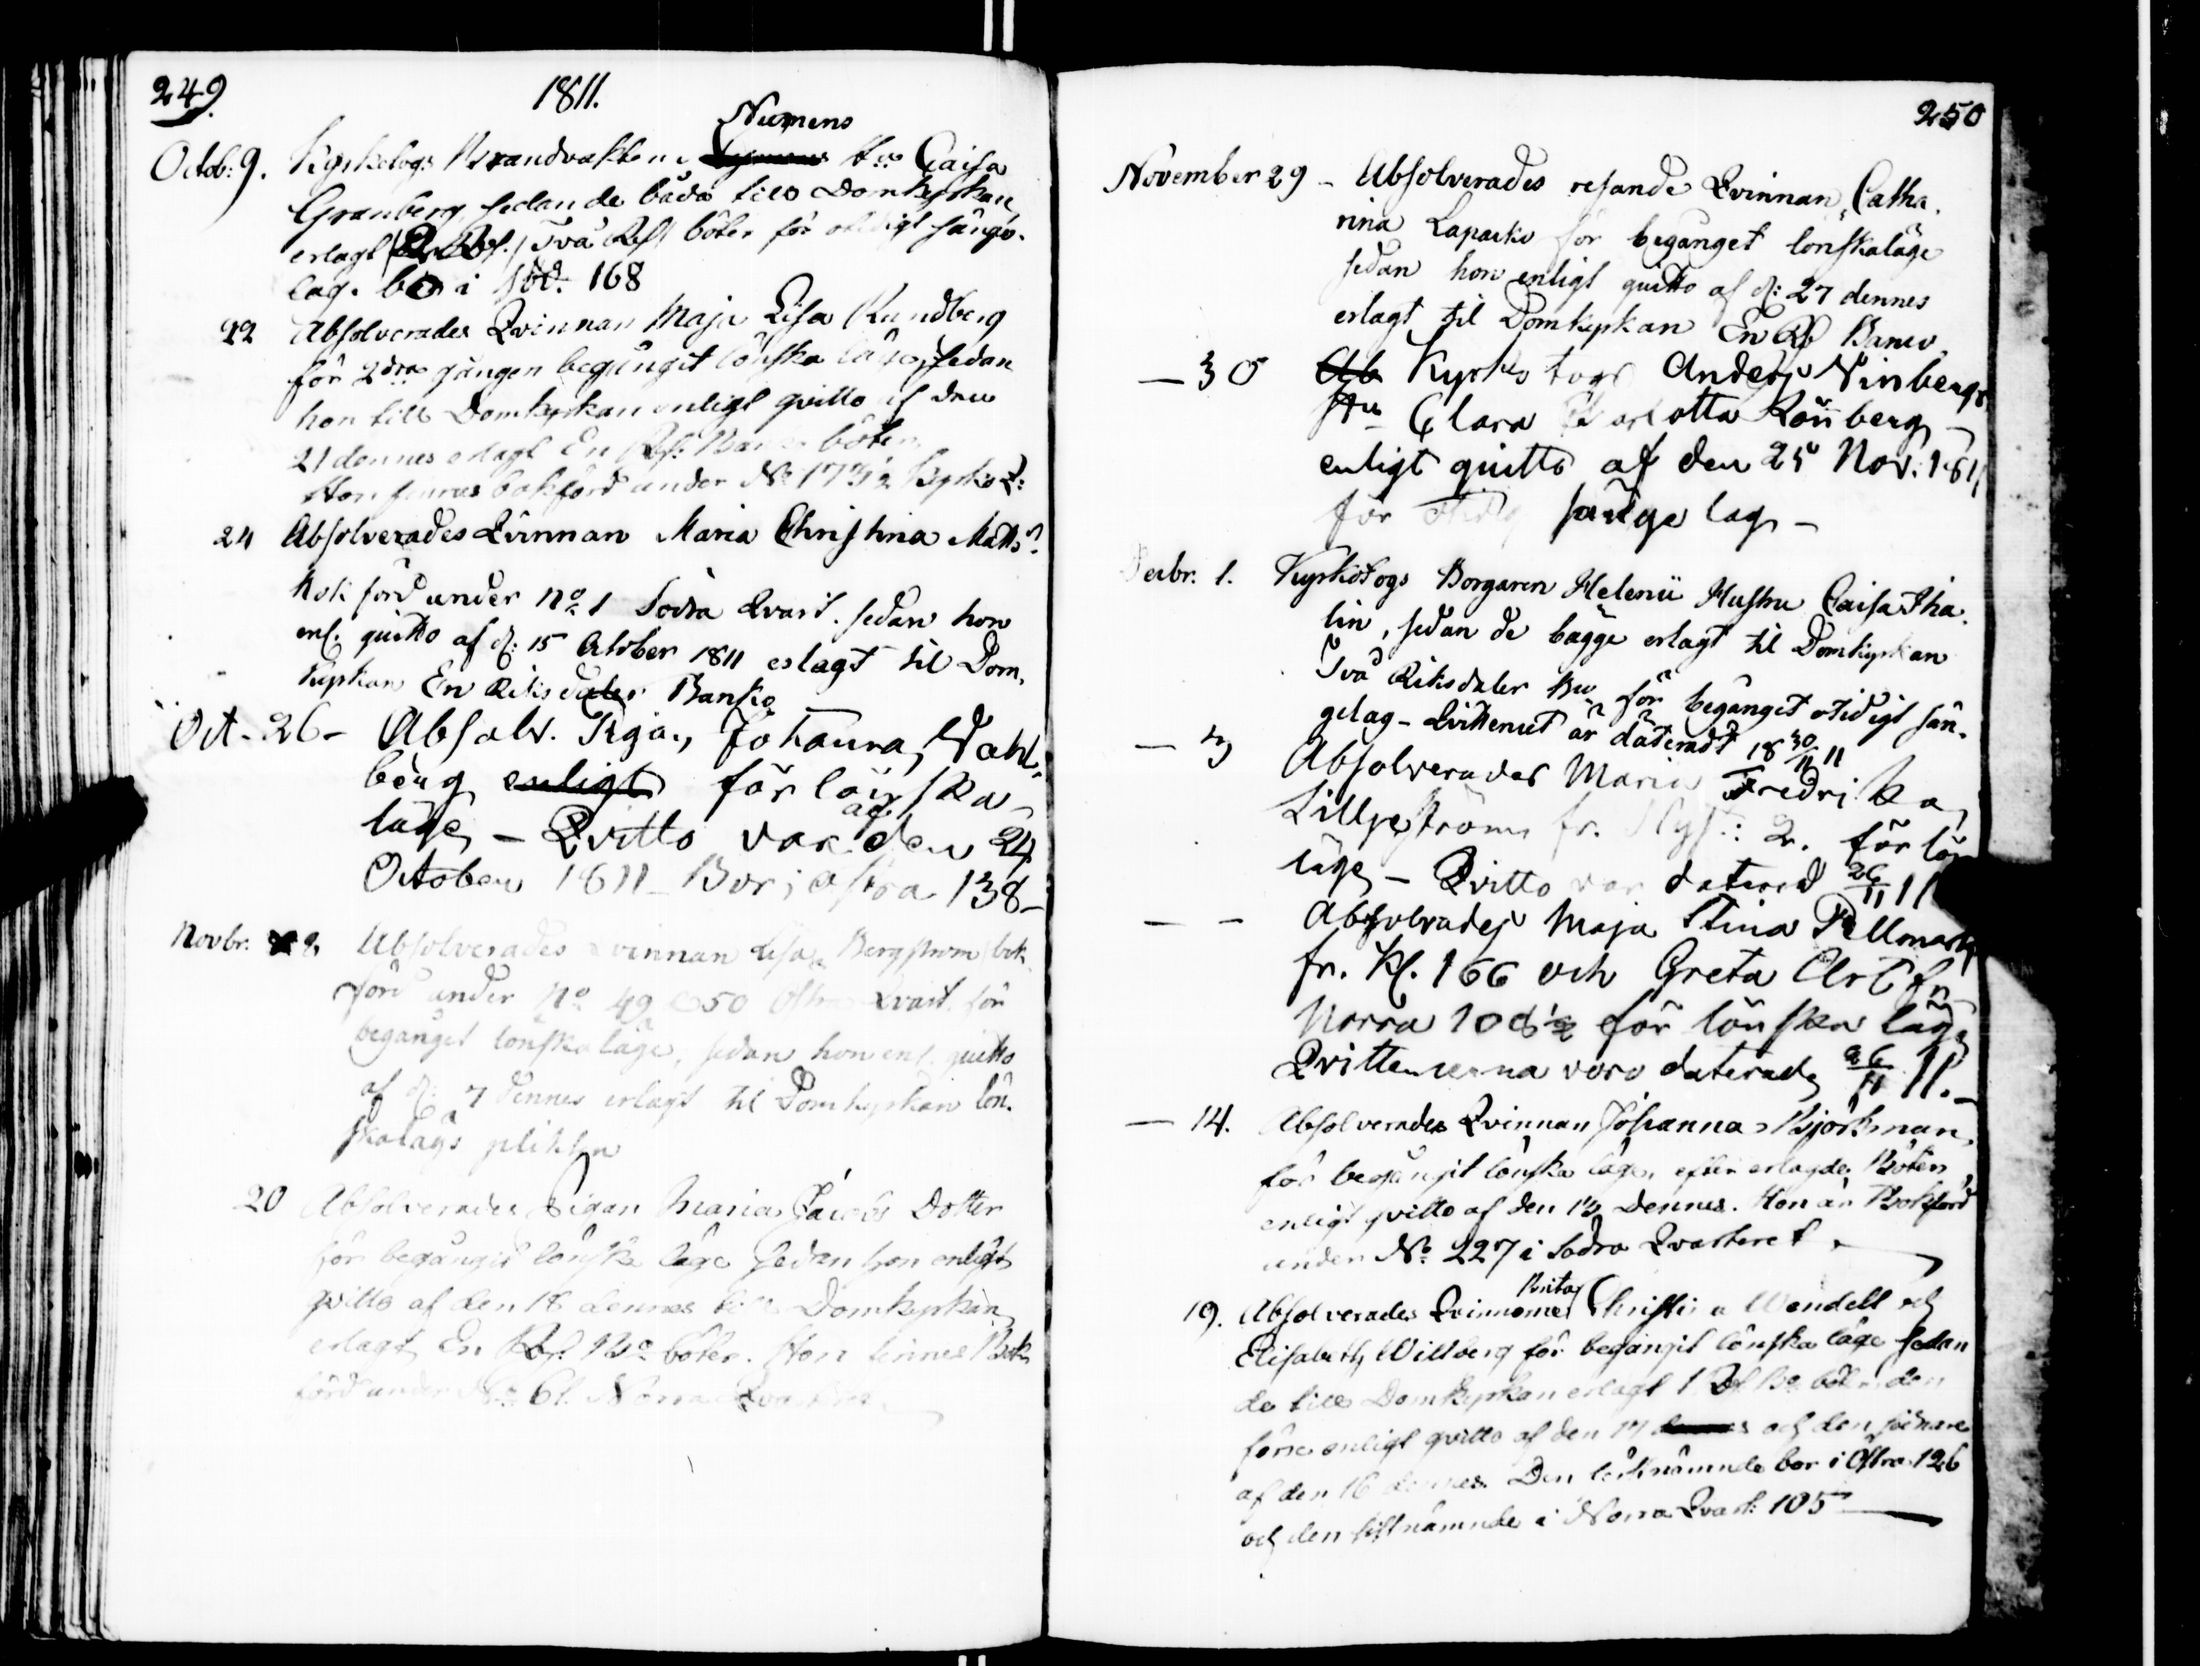 249.
1811.
Numens
Octob: 9. Kyrkotogs Brandvakten H:s Caisa
Granberg, sedan de båda till Domkyrkan
erlagt 2 Rd. Två Rd. böter för otidigt sänge-
lag. bor i Söd. 168
22 Absolverades Qvinnan Maja Lisa Rundberg
för 2dra gången begånget lönska läge, sedan
hon till Domkyrkan enligt qvitto af den
21 dennes erlagt En Rd: Banco böter.
Hon finnes bokförd under No 173½ Kyrko Q:
24 Absolverades Qvinnan Maria Christina Matts
Bokförd under No 1 Södra Qvart. sedan hon
enl. quitto af d: 15 October 1811 erlagt til Dom-
kyrkan En Riksdaler Banko
Oct. 26 - Absolv. Pigan, Johanna Wahl-
berg enligt för lönska
läge, - Qvitto var af den 24
October 1811 - Bor i östra 138 -
Novbr. 8 Absolverades Qvinnan Lisa Bergstrom bok-
förd under No 49 & 50 Östra Qvart. för
begånget lönskaläge, sedan hon enl. quitto
af d: 7 dennes erlagt til Domkyrkan lön-
skalägs plikten
20 Absolverades Pigan Maria Jacobs Dotter
för begångit lönska läge sedan hon enligt
qvitto af den 18 dennes till Domkyrkan
erlagt En Rd. Bo böter. Hon finnes Bok-
förd under No 61. Norra Qvarteret
250
November 29 - Absolverades resande Qvinnan Catha-
rina Lapasko för begånget lönskaläge
sedan hon enligt quitto af d: 27 dennes
erlagt til Domkyrkan En Rd Banco.
- 30 Ab Kyrko togs Anders Winbergs
Hu Clara Charlotta Rönberg -
enligt quitto af den 25 Nov. 1811
för otidig sänge lag -
Decbr. 1. Kyrkotogs Borgaren Helenii Hustru Caisa Tha-
lin, sedan de bägge erlagt til Domkyrkan
Två Riksdaler Bco för begånget otidigt sän-
gelag - Qvittenset är dateradt 18 30/11 11
- 3 Absolverades Maria Fredrika
Lilljeström fr. Kyrk: Q. för lön
läge - Qvitto var daterad 26/11 11
- - Absolverades Maja Stina Pellman
fr. Kl. 166 och Greta Art fr.
Norra 108½ för lönska läge
Qvittencerna voro daterade 26/11 11. -
- 14. Absolverades Qvinnan Johanna Björkman,
för begångit lönska läge, efter erlagde Böter
enligt qvitto af den 13 Dennes. Hon är Bokförd
under No 227 i Södra Qvarteret.
Brita
19. Absolverades Qvinnorne Christina Wendell och
Elisabeth Willberg för begångit lönska läge sedan
de till Domkyrkan erlagt 1 Rd Bo böter den
förre enligt qvitto af den 14 dennes och den sednare
af den 16 dennes. Den förstnämnde bor i Östra 126
och den sistnämnde i Norra Qvart: 105